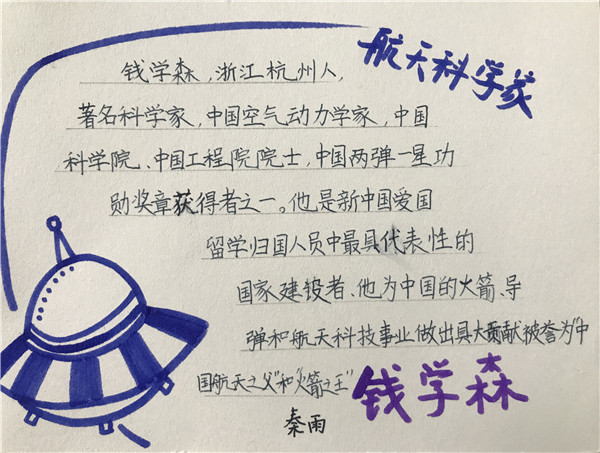 航天科学家
钱学森,浙江杭州人,
著名科学家,中国空气动力学家,中国
科学院、中国工程院院士,中国两弹一星功
勋奖章获得者之一。他是新中国爱国
留学归国人员中最具代表性的
国家建设者、他为中国的火箭、导
弹和航天科技事业做出具大贡献被誉为"中
国航天之父"和"火箭之王"
钱学森
秦雨